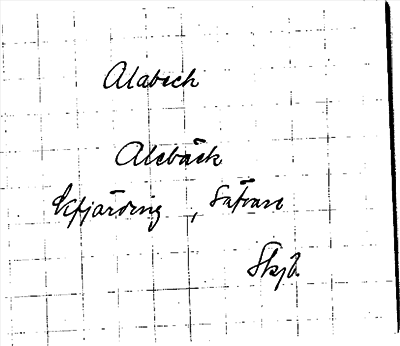 Alabech
Alebäck
Ekfjärding, Såtvare
Skjb.